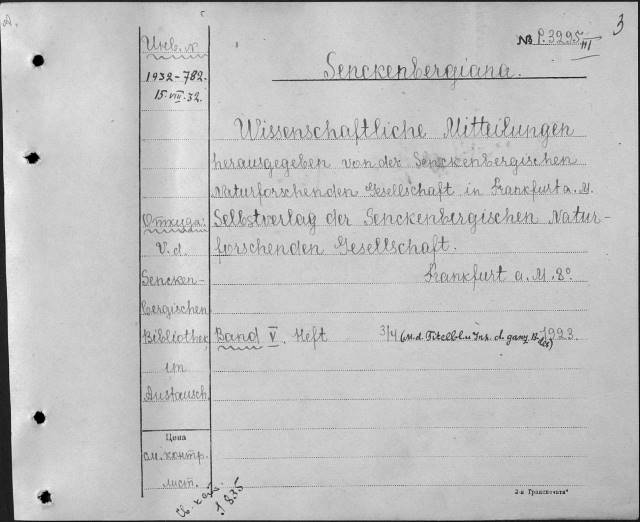 3
№ P.3295/III
Senckenbergiana.
Инв. №
1932-782.
15.VIII.32.
Wissenschaftliche Mitteilungen
herausgegeben von der Senckenbergischen
Naturforschenden Gesellschaft in Frankfurt a. M.
Selbstverlag der Senckenbergischen Natur-
forschenden Gesellschaft.
Frankfurt a. M. 8°.
Откуда:
V. d.
Sencken-
bergischen
Bibliothek
im
Austausch.
Band V. Heft 3/4 (m. d. Titelbl. u Ins. d. ganz. B-des) 1923.
Цена
см. контр.
лист.
1835
2-я Транспечать